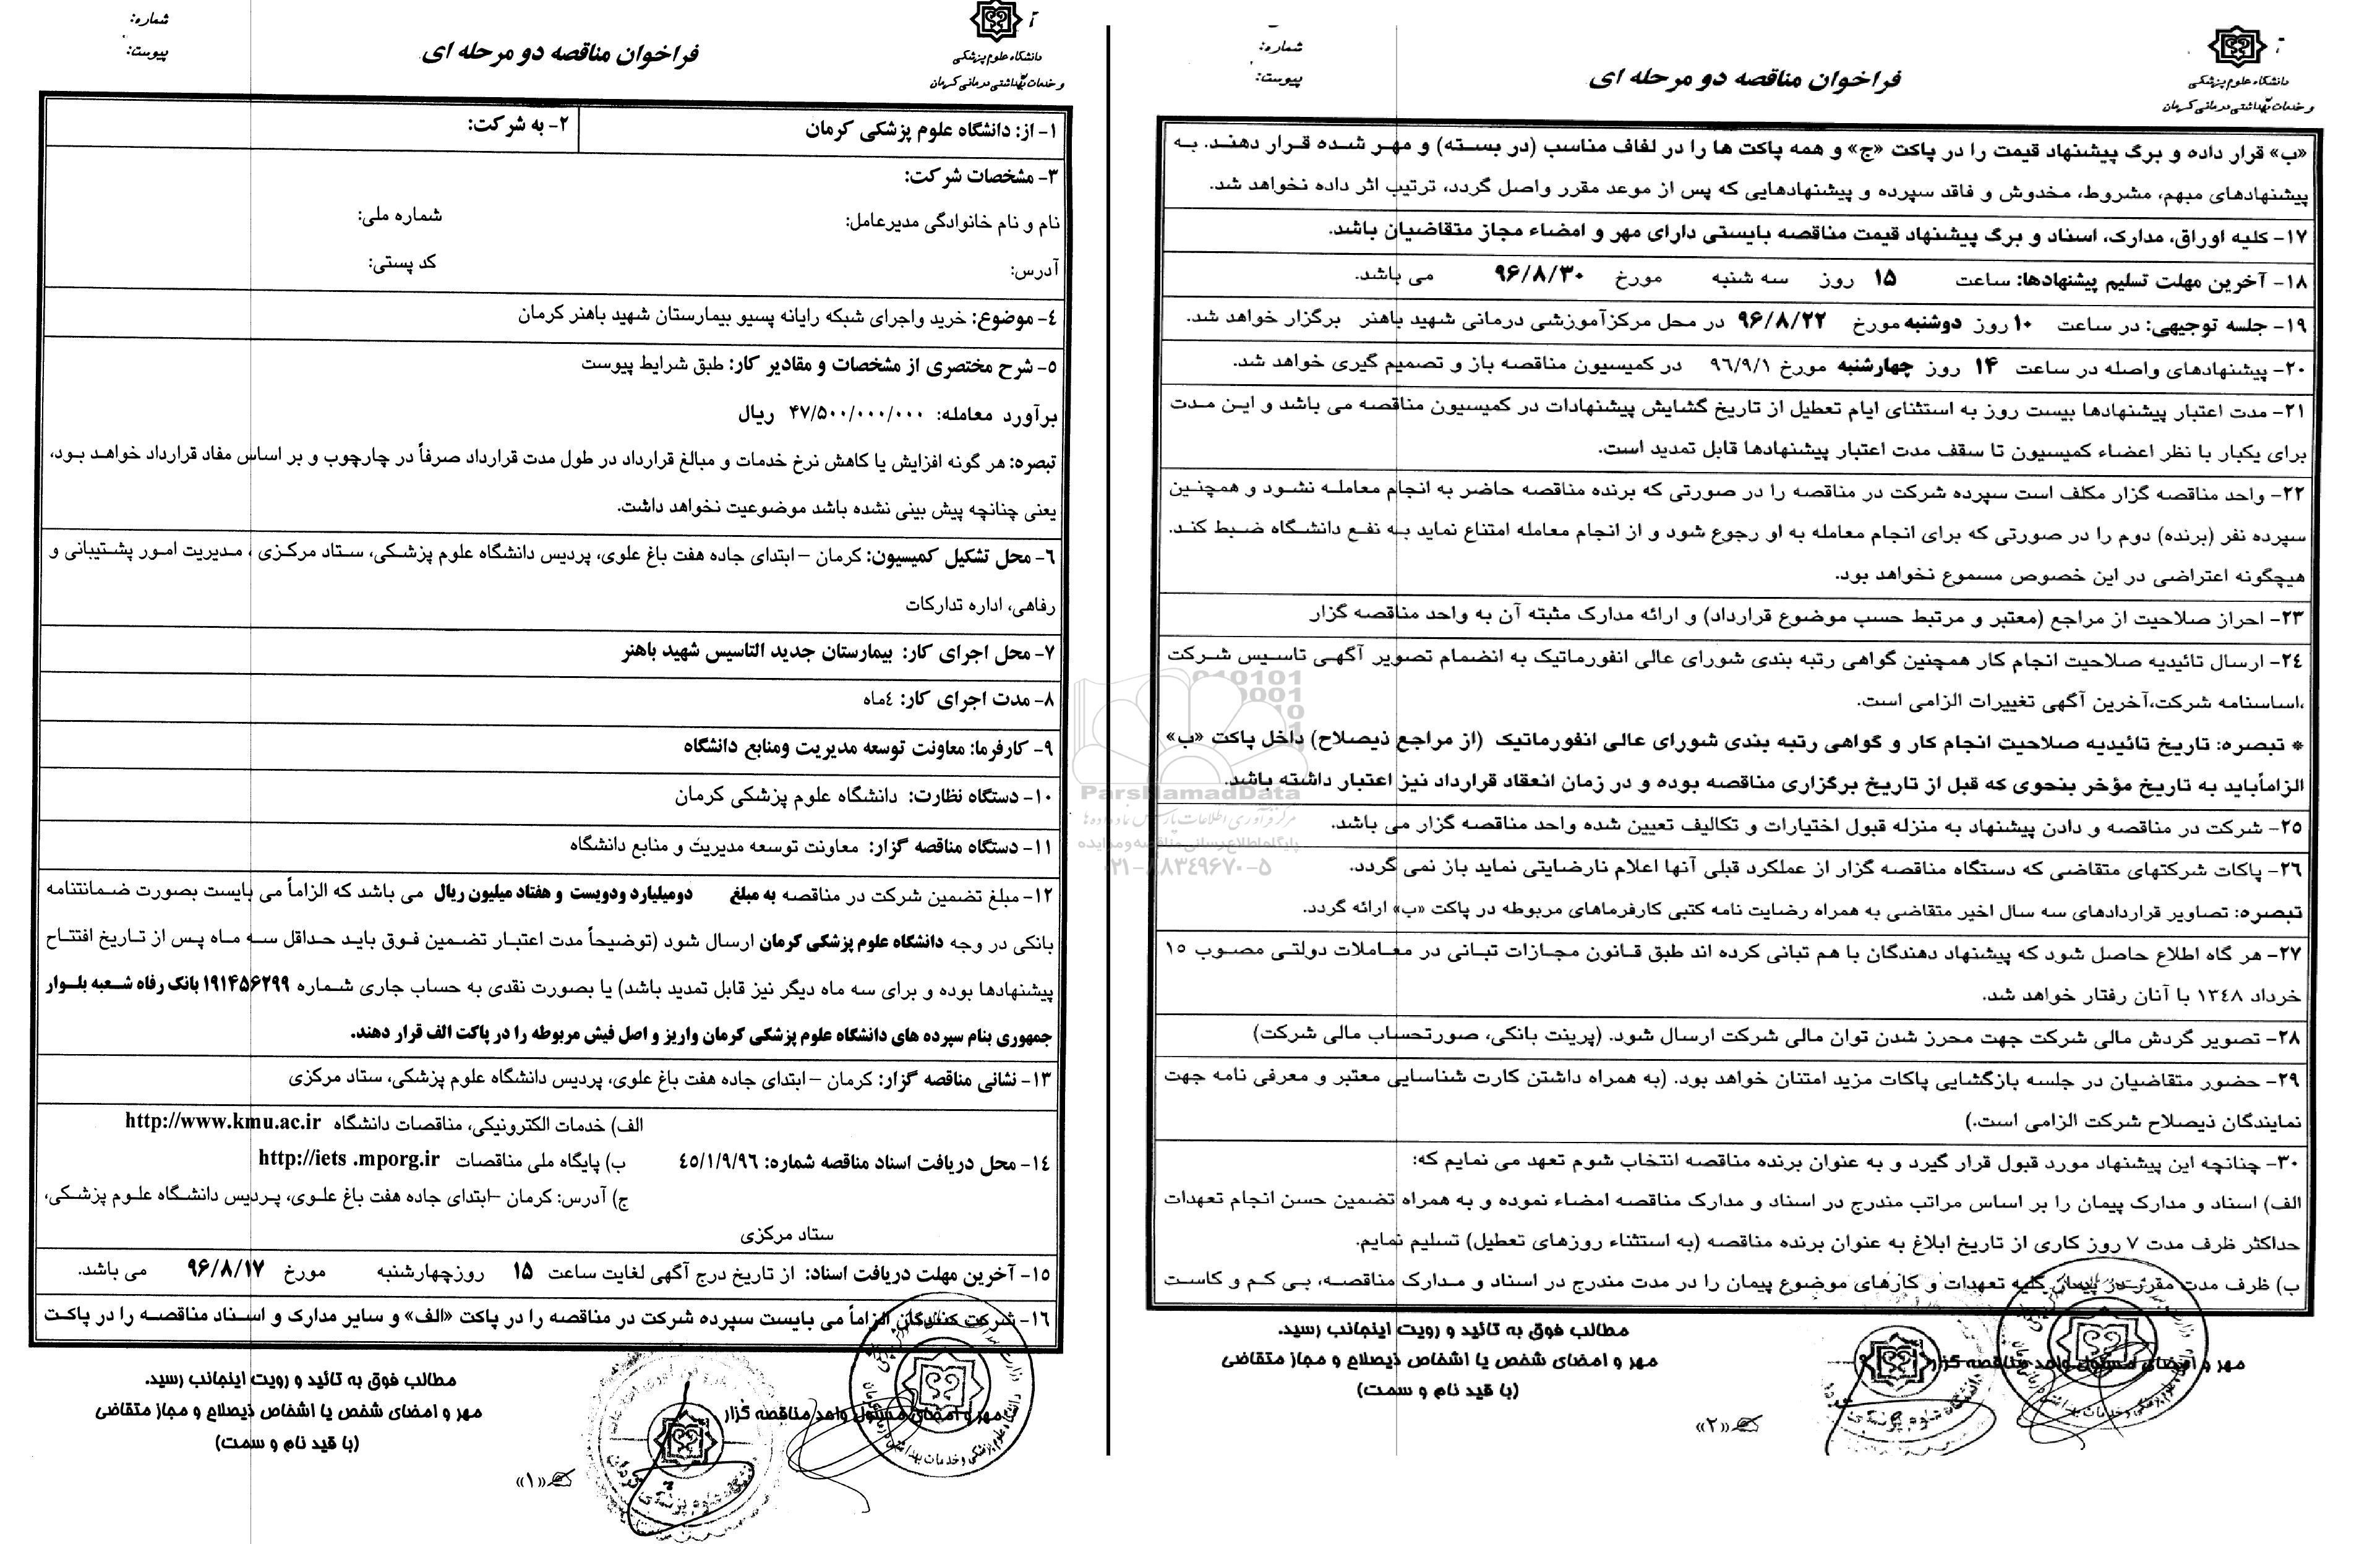 شماره:
پیوست:
فراخوان مناقصه دو مرحله ای
دانشگاه علوم پزشکی
و خدمات بهداشتی درمانی کرمان
۱- از: دانشگاه علوم پزشکی کرمان
۲- به شرکت:
۳- مشخصات شرکت:
نام و نام خانوادگی مدیرعامل: شماره ملی:
آدرس: کد پستی:
٤- موضوع: خرید واجرای شبکه رایانه پسیو بیمارستان شهید باهنر کرمان
۵- شرح مختصری از مشخصات و مقادیر کار: طبق شرایط پیوست
برآورد معامله: ۴۷/۵۰۰/۰۰۰/۰۰۰ ریال
تبصره: هر گونه افزایش یا کاهش نرخ خدمات و مبالغ قرارداد در طول مدت قرارداد صرفاً در چارچوب و بر اساس مفاد قرارداد خواهد بود،
یعنی چنانچه پیش بینی نشده باشد موضوعیت نخواهد داشت.
۶- محل تشکیل کمیسیون: کرمان – ابتدای جاده هفت باغ علوی، پردیس دانشگاه علوم پزشکی، ستاد مرکزی ، مدیریت امور پشتیبانی و
رفاهی، اداره تدارکات
۷- محل اجرای کار: بیمارستان جدید التاسیس شهید باهنر
۸- مدت اجرای کار: ٤ماه
۹- کارفرما: معاونت توسعه مدیریت ومنابع دانشگاه
۱۰- دستگاه نظارت: دانشگاه علوم پزشکی کرمان
۱۱- دستگاه مناقصه گزار: معاونت توسعه مدیریت و منابع دانشگاه
۱۲- مبلغ تضمین شرکت در مناقصه به مبلغ دومیلیارد ودویست و هفتاد میلیون ریال می باشد که الزاماً می بایست بصورت ضمانتنامه
بانکی در وجه دانشگاه علوم پزشکی کرمان ارسال شود (توضیحاً مدت اعتبار تضمین فوق باید حداقل سه ماه پس از تاریخ افتتاح
پیشنهادها بوده و برای سه ماه دیگر نیز قابل تمدید باشد) یا بصورت نقدی به حساب جاری شماره ۱۹۱۴۵۶۲۹۹ بانک رفاه شعبه بلوار
جمهوری بنام سپرده های دانشگاه علوم پزشکی کرمان واریز و اصل فیش مربوطه را در پاکت الف قرار دهند.
۱۳- نشانی مناقصه گزار: کرمان – ابتدای جاده هفت باغ علوی، پردیس دانشگاه علوم پزشکی، ستاد مرکزی
الف) خدمات الکترونیکی، مناقصات دانشگاه http://www.kmu.ac.ir
۱٤- محل دریافت اسناد مناقصه شماره: ٤٥/۱/۹/۹۶ ب) پایگاه ملی مناقصات http://iets .mporg.ir
ج) آدرس: کرمان –ابتدای جاده هفت باغ علوی، پردیس دانشگاه علوم پزشکی،
ستاد مرکزی
۱۵- آخرین مهلت دریافت اسناد: از تاریخ درج آگهی لغایت ساعت ۱۵ روزچهارشنبه مورخ ۹۶/۸/۱۷ می باشد.
۱۶- شرکت کنندگان الزاماً می بایست سپرده شرکت در مناقصه را در پاکت «الف» و سایر مدارک و اسناد مناقصه را در پاکت
مطالب فوق به تائید و رویت اینجانب رسید.
مهر و امضای شخص یا اشخاص ذیصلاح و مجاز متقاضی
(با قید نام و سمت)
مهر و امضای مسئول واحد مناقصه گزار
«۱»
شماره:
پیوست:
فراخوان مناقصه دو مرحله ای
دانشگاه علوم پزشکی
و خدمات بهداشتی درمانی کرمان
«ب» قرار داده و برگ پیشنهاد قیمت را در پاکت «ج» و همه پاکت ها را در لفاف مناسب (در بسته) و مهر شده قرار دهند. به
پیشنهادهای مبهم، مشروط، مخدوش و فاقد سپرده و پیشنهادهایی که پس از موعد مقرر واصل گردد، ترتیب اثر داده نخواهد شد.
۱۷- کلیه اوراق، مدارک، اسناد و برگ پیشنهاد قیمت مناقصه بایستی دارای مهر و امضاء مجاز متقاضیان باشد.
۱۸- آخرین مهلت تسلیم پیشنهادها: ساعت ۱۵ روز سه شنبه مورخ ۹۶/۸/۳۰ می باشد.
۱۹- جلسه توجیهی: در ساعت ۱۰ روز دوشنبه مورخ ۹۶/۸/۲۲ در محل مرکزآموزشی درمانی شهید باهنر برگزار خواهد شد.
۲۰- پیشنهادهای واصله در ساعت ۱۴ روز چهارشنبه مورخ ۹۶/۹/۱ در کمیسیون مناقصه باز و تصمیم گیری خواهد شد.
۲۱- مدت اعتبار پیشنهادها بیست روز به استثنای ایام تعطیل از تاریخ گشایش پیشنهادات در کمیسیون مناقصه می باشد و این مدت
برای یکبار با نظر اعضاء کمیسیون تا سقف مدت اعتبار پیشنهادها قابل تمدید است.
۲۲- واحد مناقصه گزار مکلف است سپرده شرکت در مناقصه را در صورتی که برنده مناقصه حاضر به انجام معامله نشود و همچنین
سپرده نفر (برنده) دوم را در صورتی که برای انجام معامله به او رجوع شود و از انجام معامله امتناع نماید به نفع دانشگاه ضبط کند.
هیچگونه اعتراضی در این خصوص مسموع نخواهد بود.
۲۳- احراز صلاحیت از مراجع (معتبر و مرتبط حسب موضوع قرارداد) و ارائه مدارک مثبته آن به واحد مناقصه گزار
۲٤- ارسال تائیدیه صلاحیت انجام کار همچنین گواهی رتبه بندی شورای عالی انفورماتیک به انضمام تصویر آگهی تاسیس شرکت
،اساسنامه شرکت،آخرین آگهی تغییرات الزامی است.
* تبصره: تاریخ تائیدیه صلاحیت انجام کار و گواهی رتبه بندی شورای عالی انفورماتیک (از مراجع ذیصلاح) داخل پاکت «ب»
الزاماًباید به تاریخ مؤخر بنحوی که قبل از تاریخ برگزاری مناقصه بوده و در زمان انعقاد قرارداد نیز اعتبار داشته باشد.
۲۵- شرکت در مناقصه و دادن پیشنهاد به منزله قبول اختیارات و تکالیف تعیین شده واحد مناقصه گزار می باشد.
۲۶- پاکات شرکتهای متقاضی که دستگاه مناقصه گزار از عملکرد قبلی آنها اعلام نارضایتی نماید باز نمی گردد.
تبصره: تصاویر قراردادهای سه سال اخیر متقاضی به همراه رضایت نامه کتبی کارفرماهای مربوطه در پاکت «ب» ارائه گردد.
۲۷- هر گاه اطلاع حاصل شود که پیشنهاد دهندگان با هم تبانی کرده اند طبق قانون مجازات تبانی در معاملات دولتی مصوب ۱۵
خرداد ۱۳٤۸ با آنان رفتار خواهد شد.
۲۸- تصویر گردش مالی شرکت جهت محرز شدن توان مالی شرکت ارسال شود. (پرینت بانکی، صورتحساب مالی شرکت)
۲۹- حضور متقاضیان در جلسه بازگشایی پاکات مزید امتنان خواهد بود. (به همراه داشتن کارت شناسایی معتبر و معرفی نامه جهت
نمایندگان ذیصلاح شرکت الزامی است.)
۳۰- چنانچه این پیشنهاد مورد قبول قرار گیرد و به عنوان برنده مناقصه انتخاب شوم تعهد می نمایم که:
الف) اسناد و مدارک پیمان را بر اساس مراتب مندرج در اسناد و مدارک مناقصه امضاء نموده و به همراه تضمین حسن انجام تعهدات
حداکثر ظرف مدت ۷ روز کاری از تاریخ ابلاغ به عنوان برنده مناقصه (به استثناء روزهای تعطیل) تسلیم نمایم.
ب) ظرف مدت مقرر در پیمان کلیه تعهدات و کارهای موضوع پیمان را در مدت مندرج در اسناد و مدارک مناقصه، بی کم و کاست
مطالب فوق به تائید و رویت اینجانب رسید.
مهر و امضای شخص یا اشخاص ذیصلاح و مجاز متقاضی
(با قید نام و سمت)
مهر و امضای مسئول واحد مناقصه گزار
«۲»
ParsNamadData
پایگاه اطلاع رسانی مناقصه و مزایده
۰۲۱-۸۸۳۴۹۶۷۰-۵